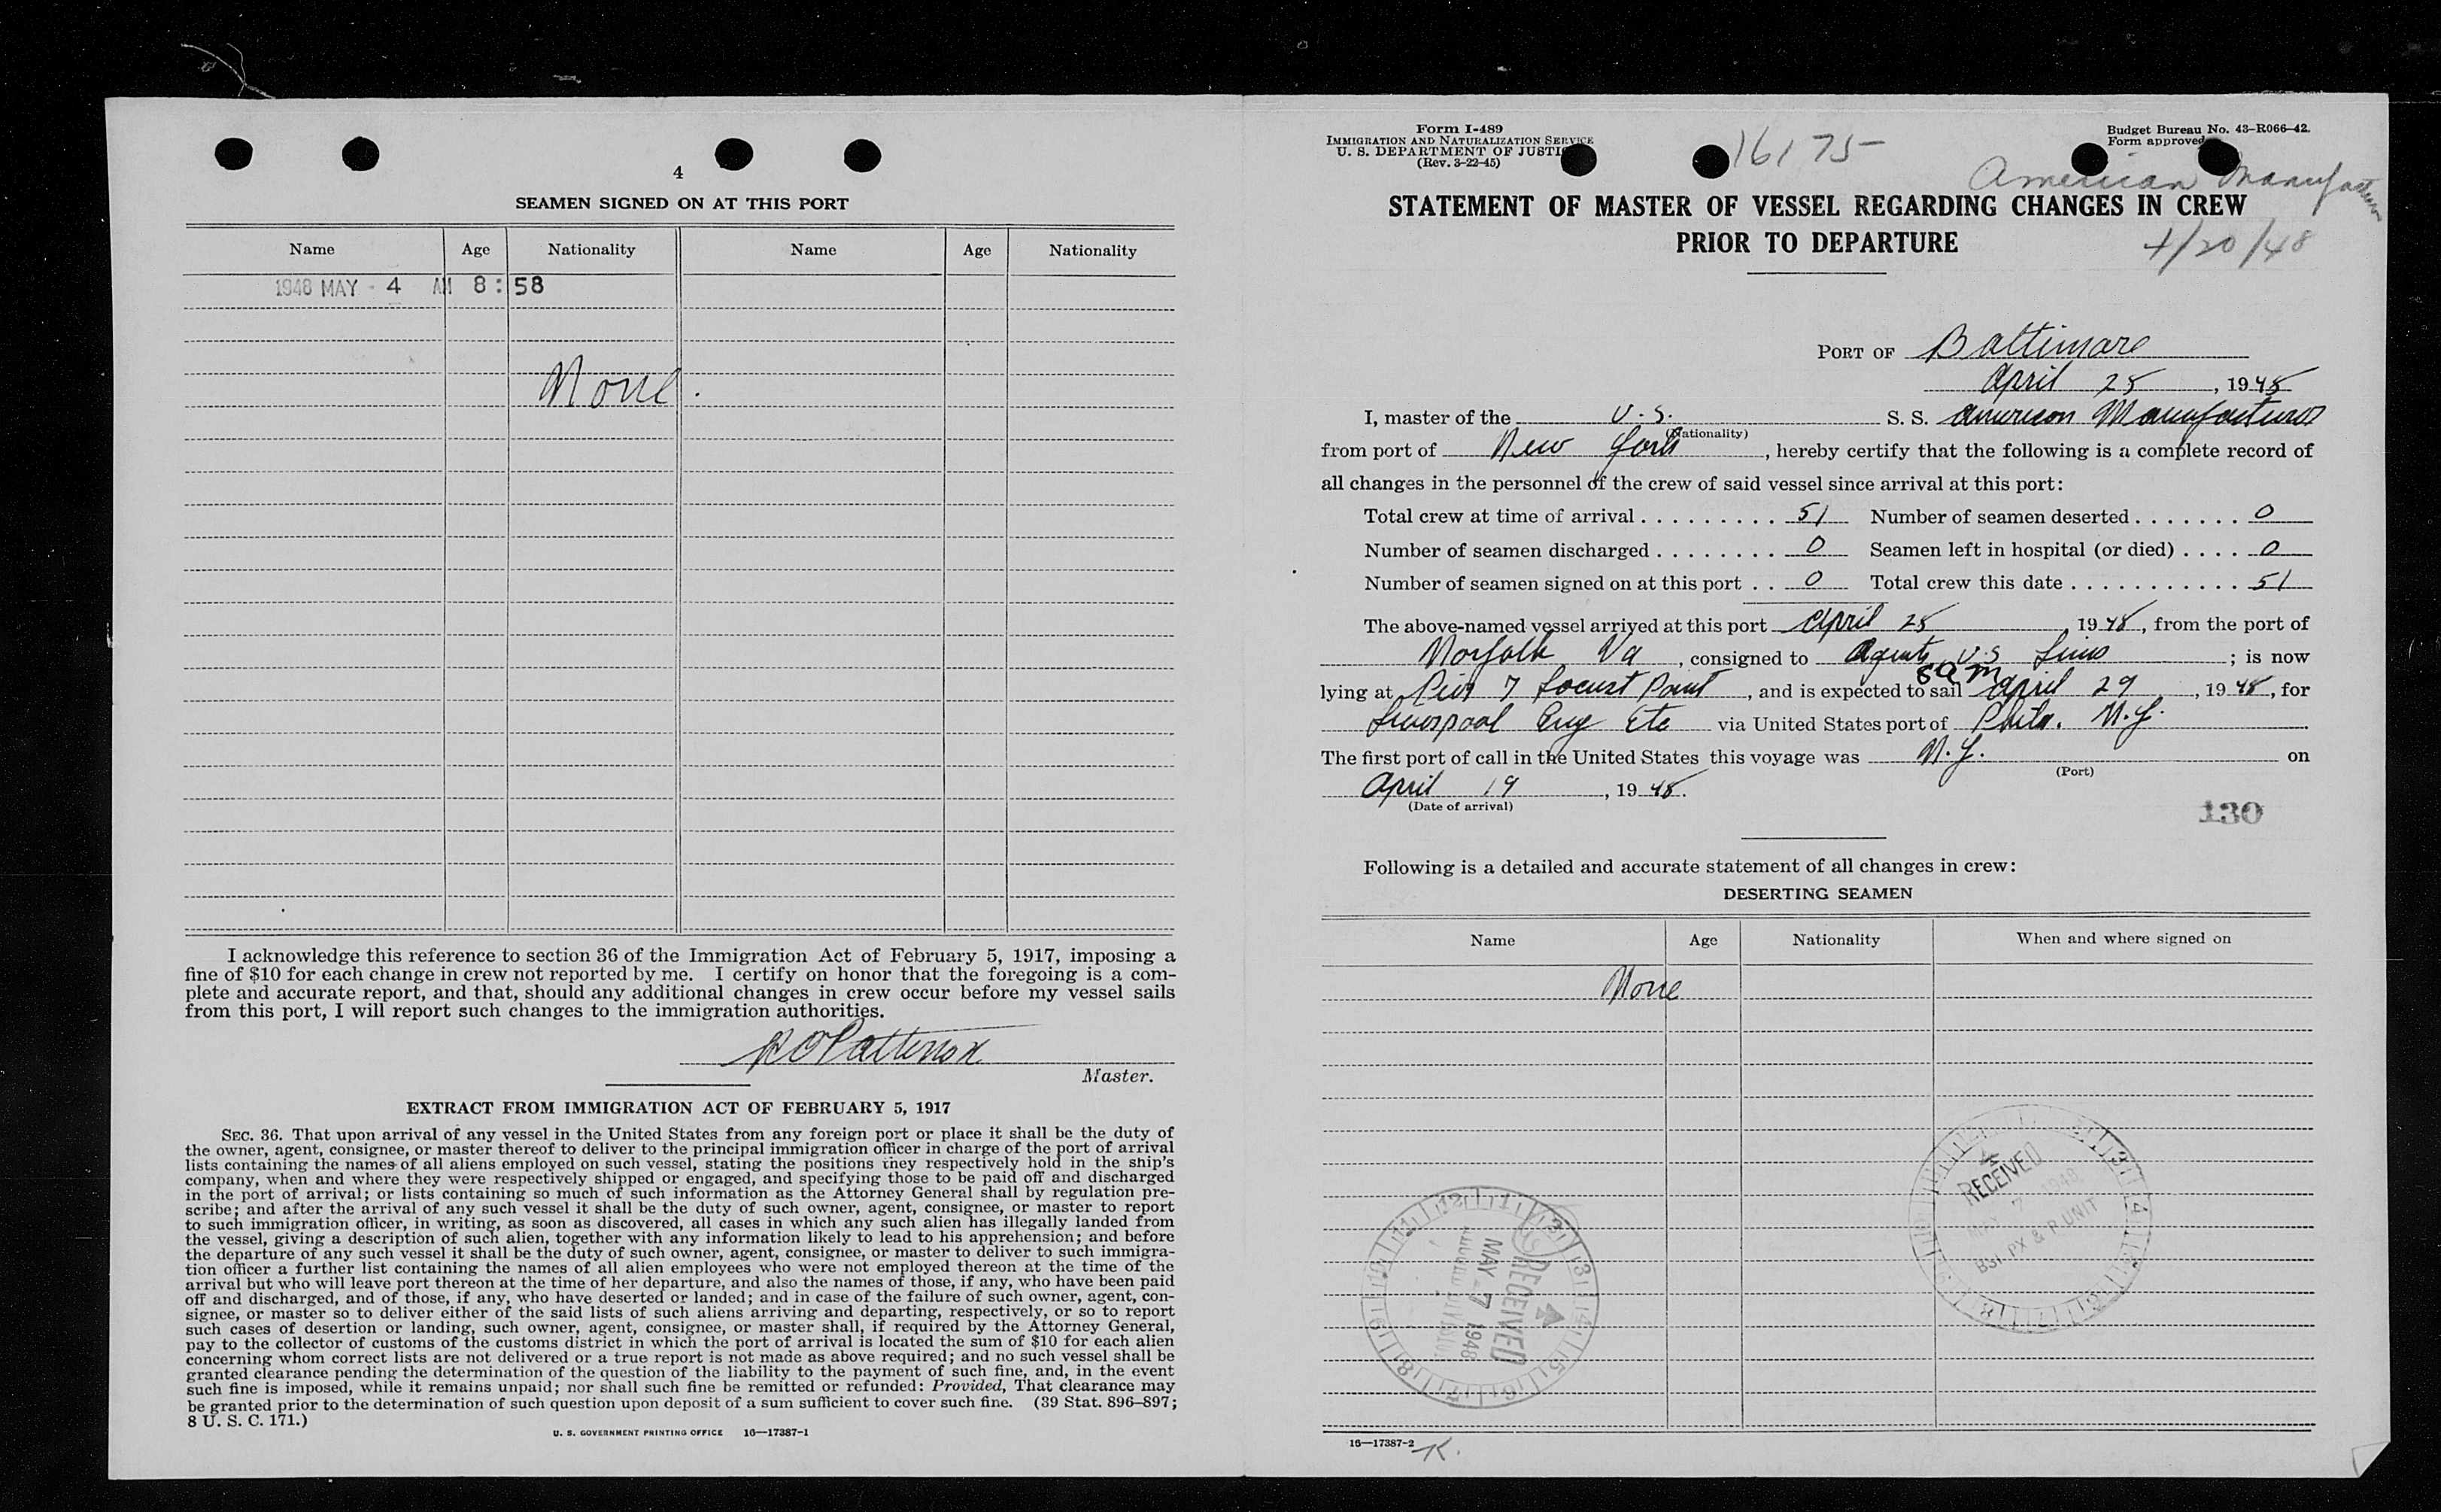 4
SEAMEN SIGNED ON AT THIS PORT
Name Age Nationality Name Age Nationality
1948 MAY - 4 AM 8:58
None.
I acknowledge this reference to section 36 of the Immigration Act of February 5, 1917, imposing a
fine of $10 for each change in crew not reported by me. I certify on honor that the foregoing is a com-
plete and accurate report, and that, should any additional changes in crew occur before my vessel sails
from this port, I will report such changes to the immigration authorities.
Patterson
Master.
EXTRACT FROM IMMIGRATION ACT OF FEBRUARY 5, 1917
SEC. 36. That upon arrival of any vessel in the United States from any foreign port or place it shall be the duty of
the owner, agent, consignee, or master thereof to deliver to the principal immigration officer in charge of the port of arrival
lists containing the names of all aliens employed on such vessel, stating the positions they respectively hold in the ship's
company, when and where they were respectively shipped or engaged, and specifying those to be paid off and discharged
in the port of arrival; or lists containing so much of such information as the Attorney General shall by regulation pre-
scribe; and after the arrival of any such vessel it shall be the duty of such owner, agent, consignee, or master to report
to such immigration officer, in writing, as soon as discovered, all cases in which any such alien has illegally landed from
the vessel, giving a description of such alien, together with any information likely to lead to his apprehension; and before
the departure of any such vessel it shall be the duty of such owner, agent, consignee, or master to deliver to such immigra-
tion officer a further list containing the names of all alien employees who were not employed thereon at the time of the
arrival but who will leave port thereon at the time of her departure, and also the names of those, if any, who have been paid
off and discharged, and of those, if any, who have deserted or landed; and in case of the failure of such owner, agent, con-
signee, or master so to deliver either of the said lists of such aliens arriving and departing, respectively, or so to report
such cases of desertion or landing, such owner, agent, consignee, or master shall, if required by the Attorney General,
pay to the collector of customs of the customs district in which the port of arrival is located the sum of $10 for each alien
concerning whom correct lists are not delivered or a true report is not made as above required; and no such vessel shall be
granted clearance pending the determination of the question of the liability to the payment of such fine, and, in the event
such fine is imposed, while it remains unpaid; nor shall such fine be remitted or refunded: Provided, That clearance may
be granted prior to the determination of such question upon deposit of a sum sufficient to cover such fine. (39 Stat. 896–897;
8 U. S. C. 171.)
U. S. GOVERNMENT PRINTING OFFICE 16—17387-1
Form I-489
IMMIGRATION AND NATURALIZATION SERVICE
U. S. DEPARTMENT OF JUSTI
(Rev. 3-22-45)
16175
Budget Bureau No. 43–R066–42.
Form approved
American Manufacturer
STATEMENT OF MASTER OF VESSEL REGARDING CHANGES IN CREW
PRIOR TO DEPARTURE
4/20/48
PORT OF Baltimore
April 28, 1948
I, master of the U.S. S. S. American Manufacturer
(Nationality)
from port of New York, hereby certify that the following is a complete record of
all changes in the personnel of the crew of said vessel since arrival at this port:
Total crew at time of arrival 51 Number of seamen deserted 0
Number of seamen discharged 0 Seamen left in hospital (or died) 0
Number of seamen signed on at this port 0 Total crew this date 51
The above-named vessel arrived at this port April 28, 1948, from the port of
Norfolk Va, consigned to Agents U S Lines; is now
lying at Pier 7 Locust Point, and is expected to sail 8 AM April 29, 1948, for
Liverpool Eng Etc via United States port of Phila. N.Y.
The first port of call in the United States this voyage was N.Y. on
(Port)
April 19, 1948.
(Date of arrival)
130
Following is a detailed and accurate statement of all changes in crew:
DESERTING SEAMEN
Name Age Nationality When and where signed on
None
RECEIVED
MAY 7 1948
BSI. PX & P. UNIT
RECEIVED
MAY 7 1948
16—17387-2
K.